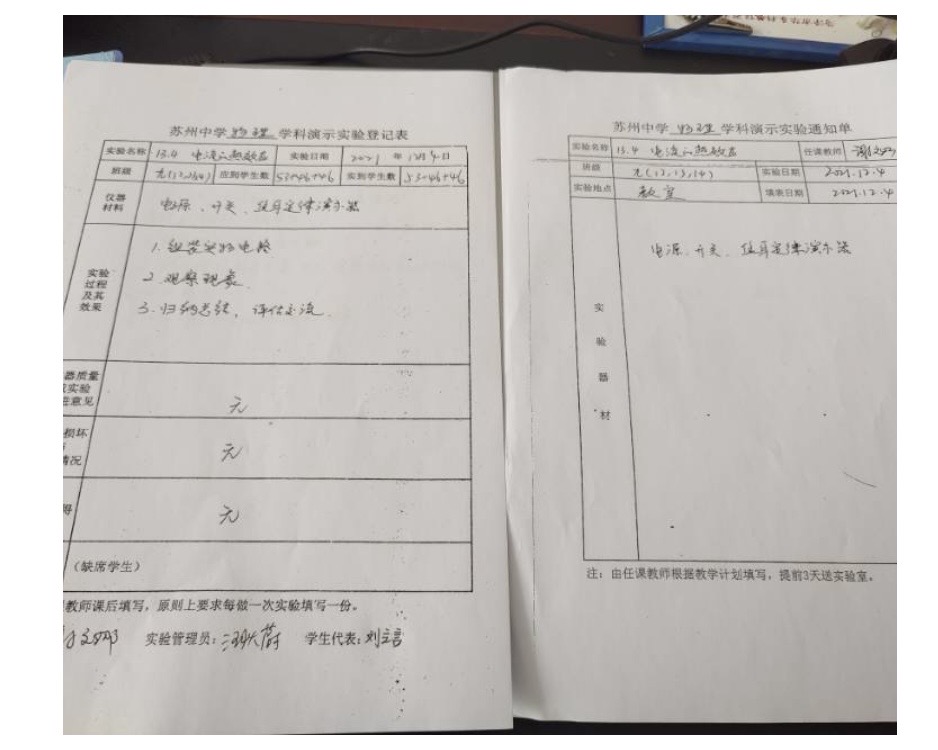 苏州中学 物理 学科演示实验登记表
实验名称 15.4 电流的热效应 实验日期 2021 年 12月4日
班级 元(12,13,14) 应到学生数 53+46+46 实到学生数 53+46+46
仪器材料 电源、开关、焦耳定律演示器
实验过程及其效果
1. 组装实物电路
2. 观察现象.
3. 归纳总结, 评估交流.
器质量
实验
意见
无
损坏
情况
无
无
(缺席学生)
教师课后填写,原则上要求每做一次实验填写一份。
实验管理员: 学生代表:刘言
苏州中学 物理 学科演示实验通知单
实验名称 15.4 电流的热效应 任课教师 谢文
班级 元(12,13,14) 实验日期 2021.12.4
实验地点 教室 填表日期 2021.12.4
实验器材
电源、开关、焦耳定律演示器
注:由任课教师根据教学计划填写,提前3天送实验室。